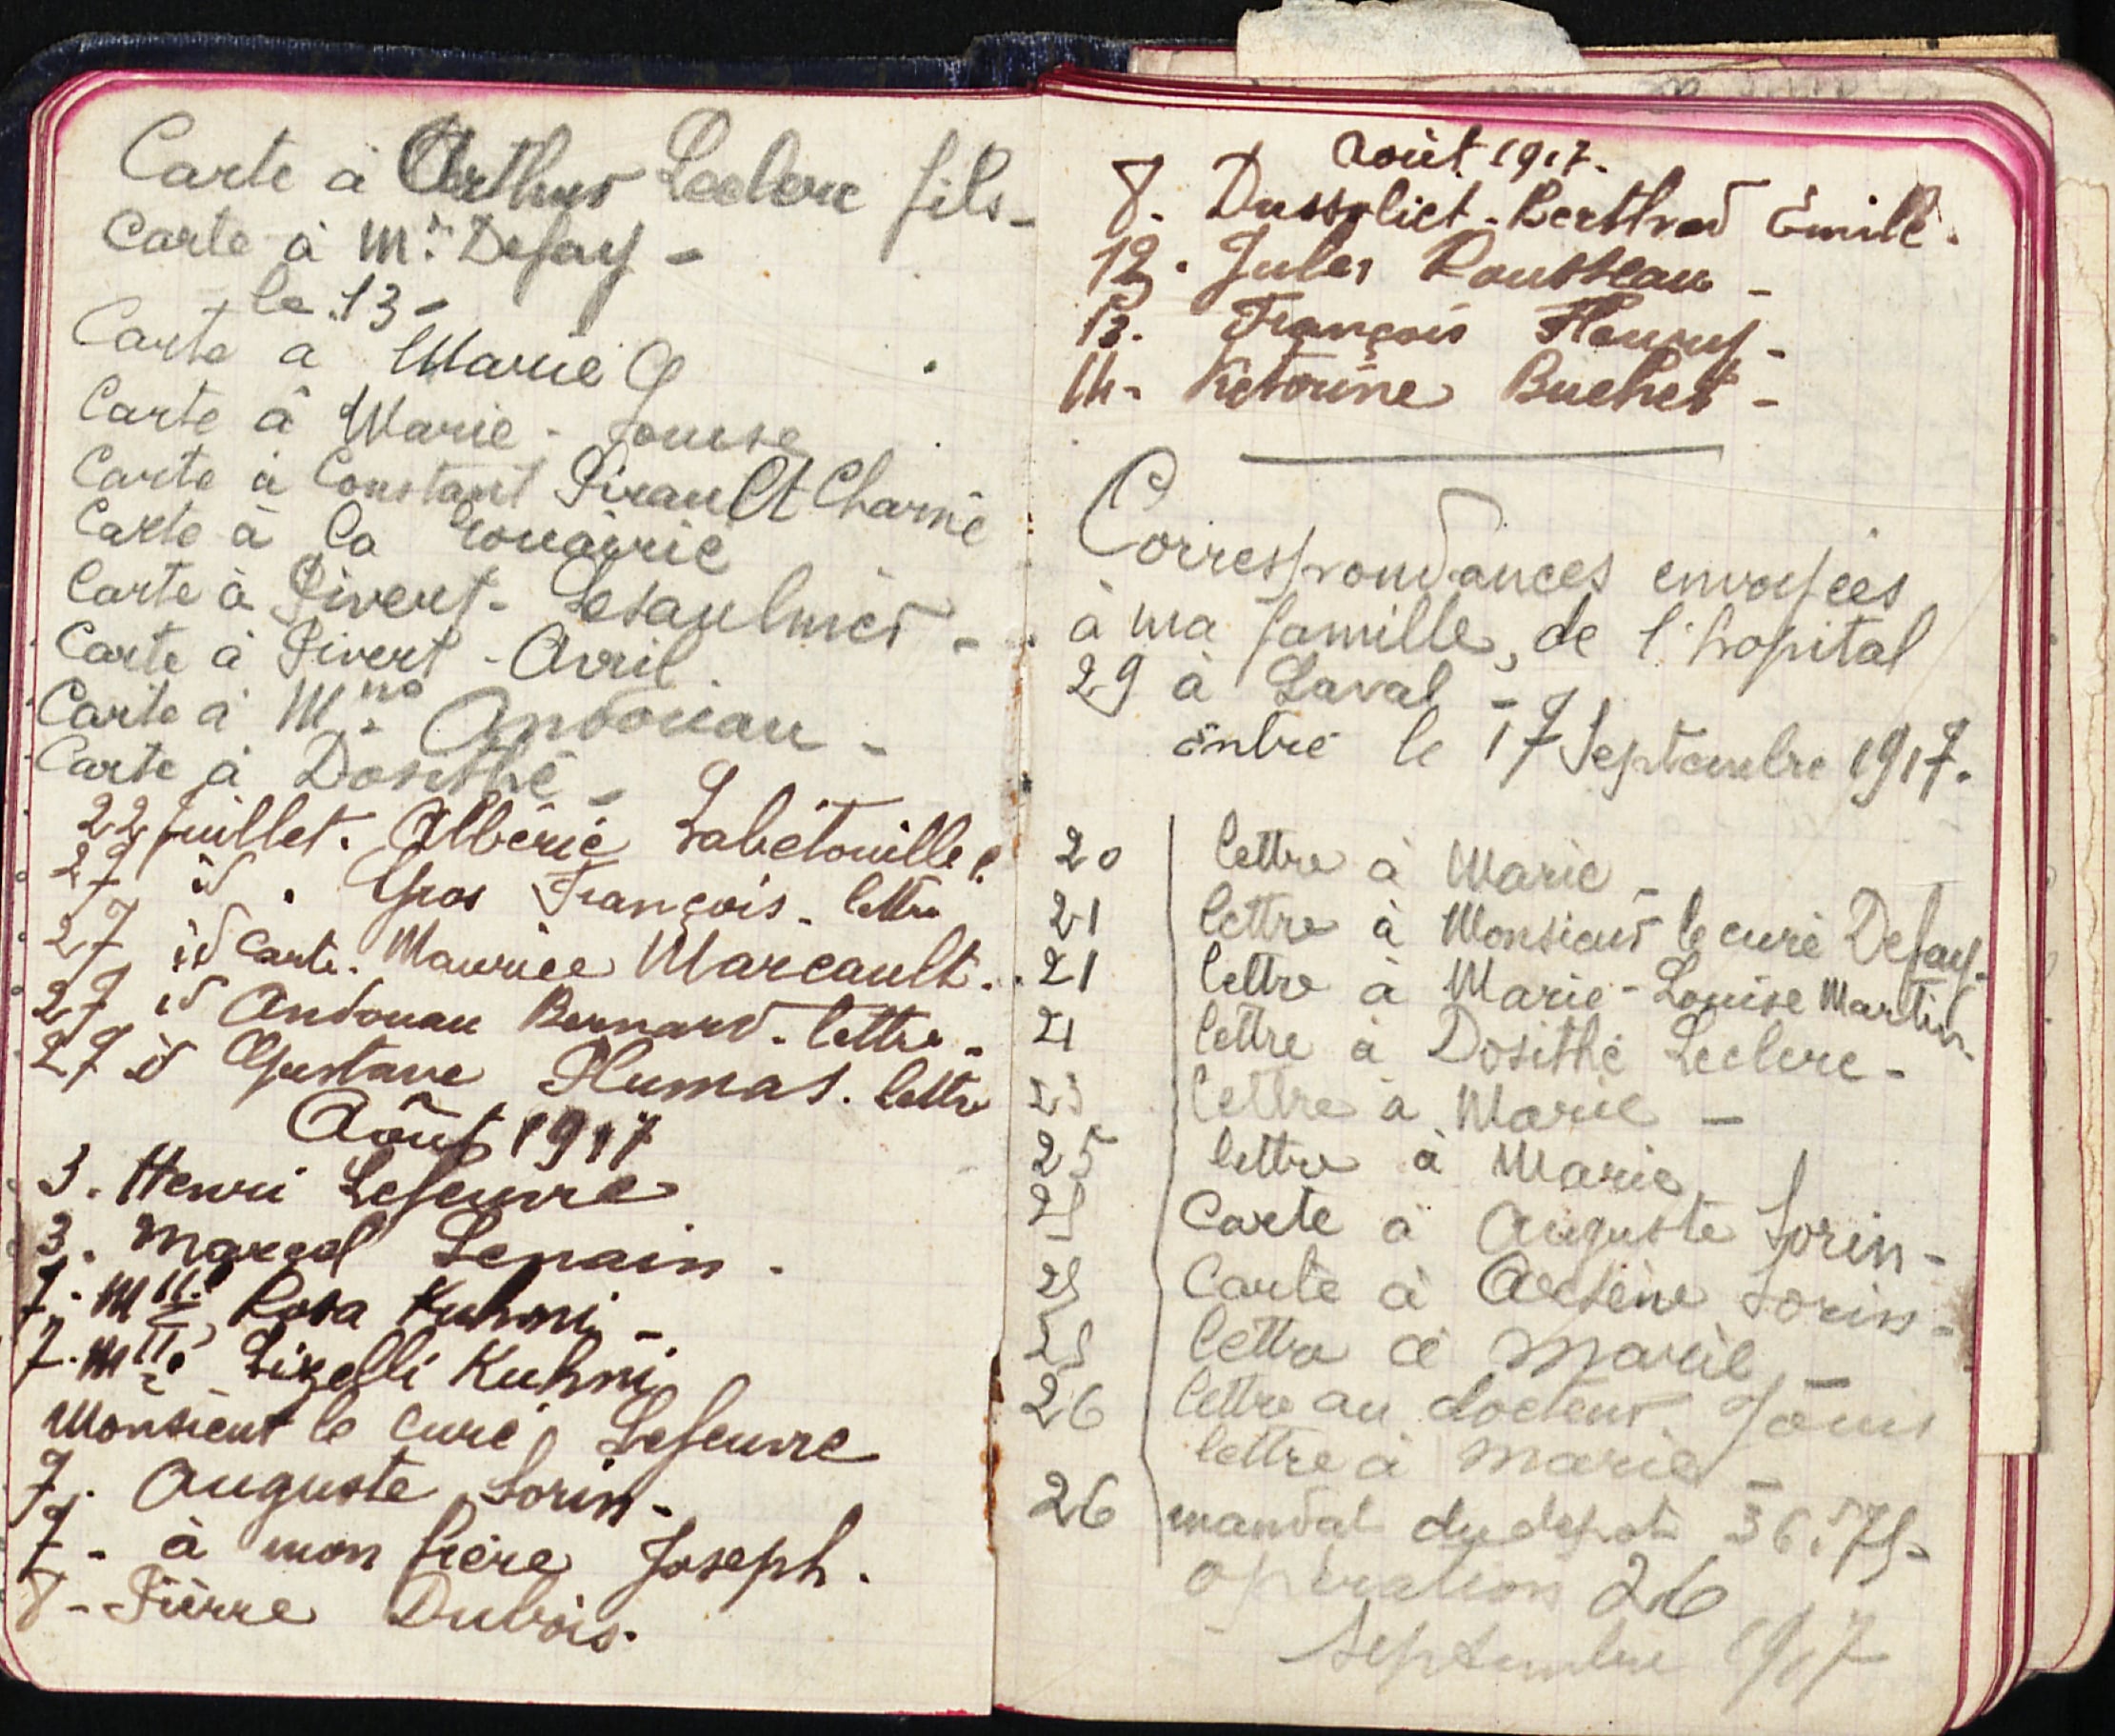 Carte à Arthur Leclerc fils -
Carte à Mr Defay -
le 13 -
Carte à Marie
Carte à Marie - Louise
Carte à Constant Pirault Charné
Carte à la
Carte à Pivert - Lesaulnier -
Carte à Pivert - Avril
Carte à Mme Andouau -
Carte à Dosithé -
22 Juillet. Albéric Labétouille
27 id. Gros François - lettre
27 id carte. Maurice Marcault.
27 id Andouau Bernard - lettre -
27 id Gustave Plumas. lettre
Août 1917
3. Henri Lefeuvre
3. Marcel Lepain -
7. Mlle Rosa Kuhni -
7. Mlle Lizelli Kuhni
Monsieur le curé Lefeuvre
7. Auguste Lorin -
7 - à mon frère Joseph.
8 - Pierre Dubois.
Août 1917.
8. Berthrad Émile.
12. Jules Rousseau -
13. François Fleury -
14 - Buchet -
Correspondances envoyées
à ma famille, de l'hopital
29 à Laval -
entré le 17 Septembre 1917.
20 lettre à Marie -
21 lettre à Monsieur le curé Defay -
21 lettre à Marie - Louise Martin -
21 lettre à Dosithé Leclerc -
23 lettre à Marie -
25 lettre à Marie
25 Carte à Auguste Lorin -
25 Carte à Arsène Lorin -
25 lettre à Marie -
26 lettre au docteur
lettre à Marie -
26 mandat du depot 36.75 -
opération 26
septembre 1917